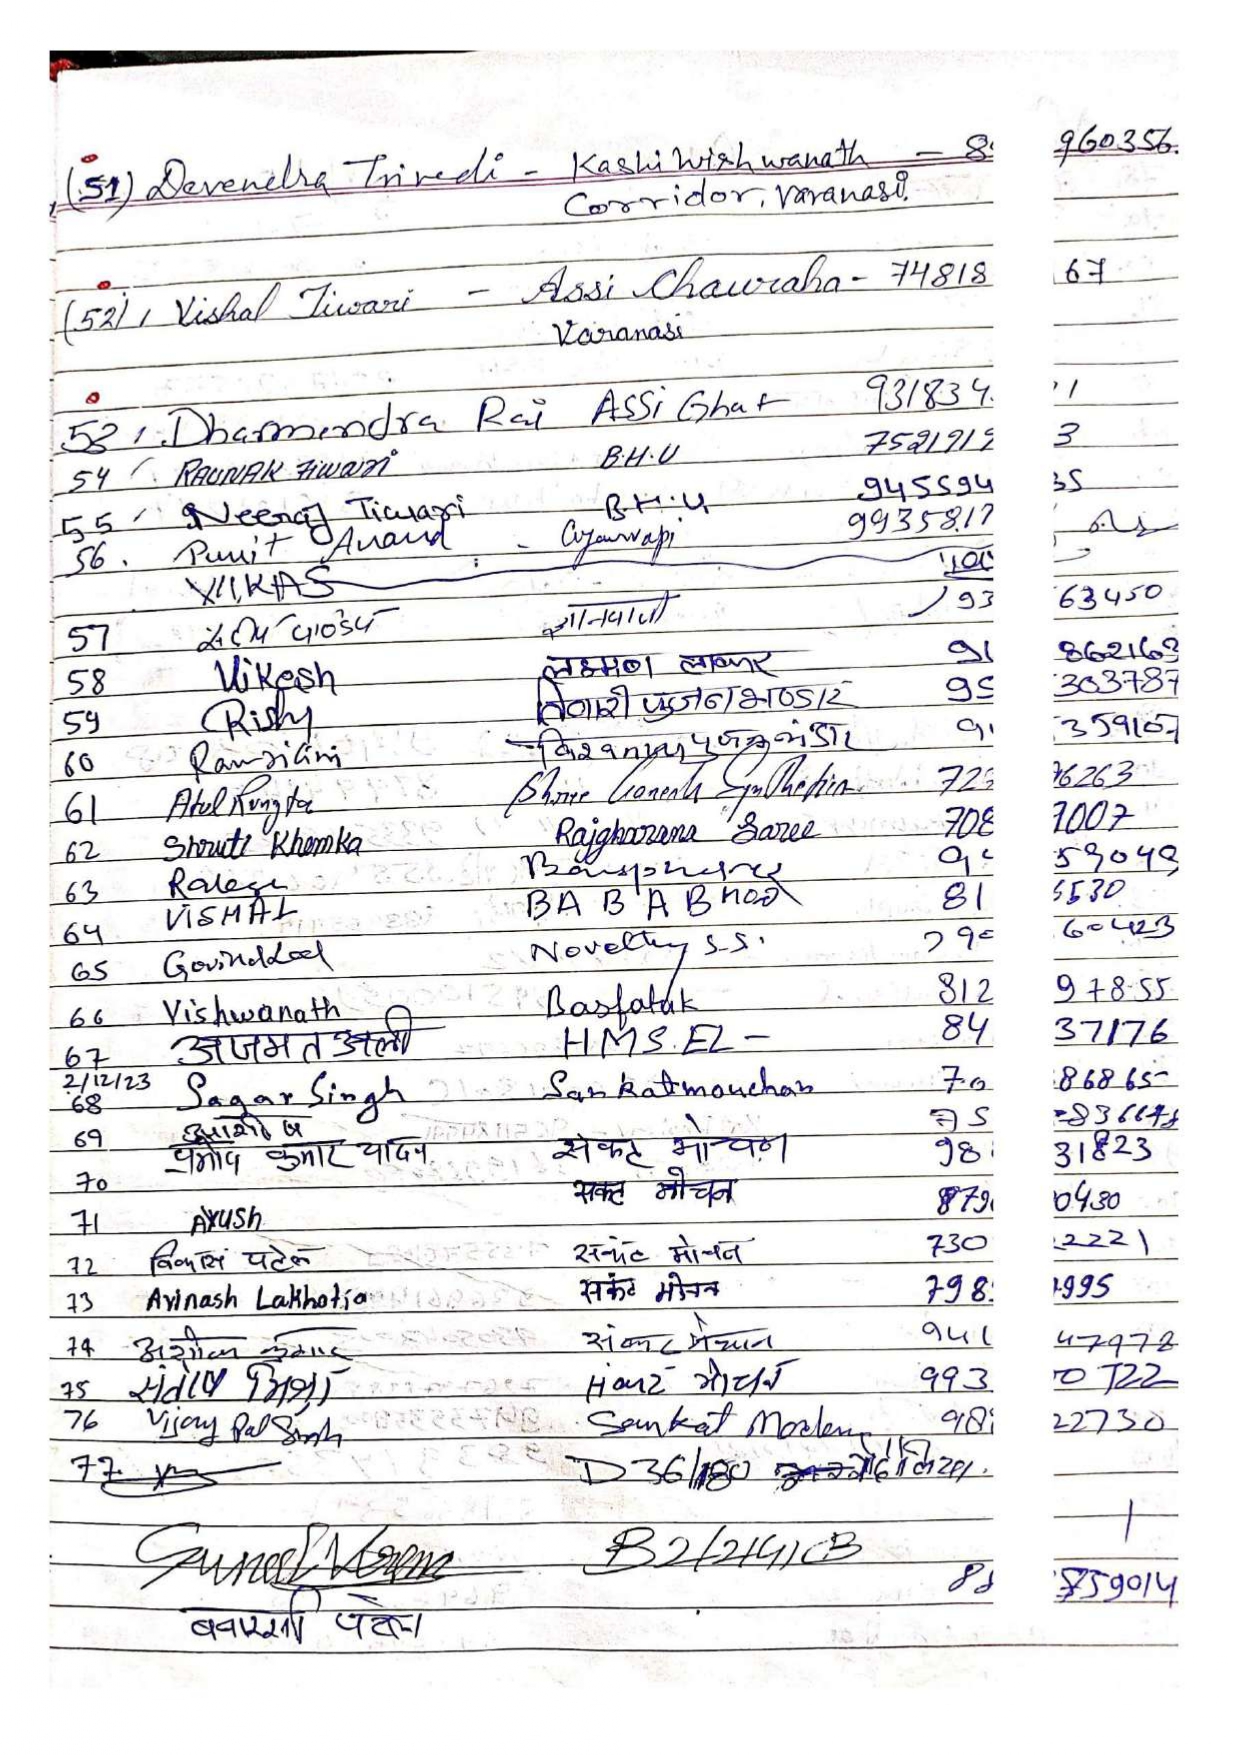 (51) Devendra Trivedi - Kashi Wishwanath - 8 960356.
Corridor, Varanasi.
(52) Vishal Tiwari - Assi Chauraha - 74818 67
Varanasi
53 Dharmendra Rai Assi Ghat 931834 1
54 RAUNAK Tiwari B.H.U 7521919 3
55 Neeraj Tiwari B.H.U 945594 35
56. Punit Anand - Gyanvapi 9935817
VIKAS
57 93 63450
58 Vikesh 91 862163
59 Rishy 95 303787
60 9 359107
61 Atul Rungta Shree Ganesh Synthetics 723 76263
62 Shruti Khemka Rajgharana Saree 708 7007
63 9 59049
64 VISHAL BABA 81 5530
65 Novelty S.S. 790 60423
66 Vishwanath Basfatak 812 97855
67 अजमत अली HMS.EL - 84 37176
2/12/23
68 Sagar Singh Sankatmouchan 70 86865
69 75 836678
प्रमोद कुमार यादव संकट मोचन 98 31823
70
सकट मोचन 879 0430
71 Ayush
72 विकास पटेल संकट मोचन 730 22221
73 Avinash Lakhotia सकंट मोचन 798 1995
74 अशोक कुमार 941 47972
75 संतोष मिश्रा 993 0722
76 Vijay Pal Singh Sankat Mochan 98 22730
77. D 36/180
Suneel Verma B2/241CB
88 759014
बनारसी पटेल